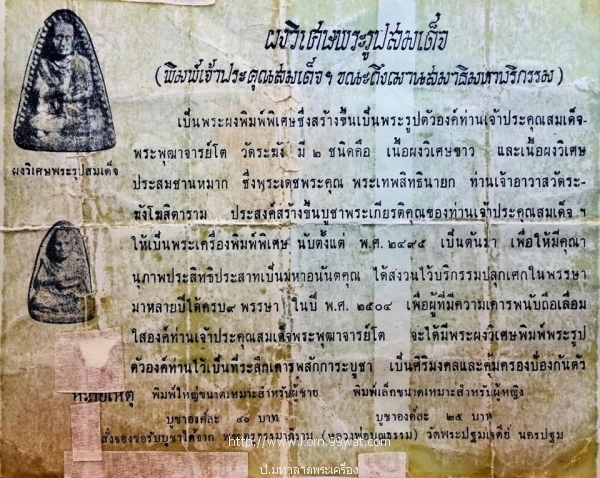 ผงวิเศษพระรูปสมเด็จ
(พิมพ์เจ้าประคุณสมเด็จฯ ขณะถึงฌานสมาธิมหาบริกรรม)
เป็นพระผงพิมพ์พิเศษซึ่งสร้างขึ้นเป็นพระรูปตัวองค์ท่านเจ้าประคุณสมเด็จ-
พระพุฒาจารย์โต วัดระฆัง มี ๒ ชนิดคือ เนื้อผงวิเศษขาว และเนื้อผงวิเศษ
ผงวิเศษพระรูปสมเด็จ
ประสมชานหมาก ซึ่งพระเดชพระคุณ พระเทพสิทธินายก ท่านเจ้าอาวาสวัดระ-
ฆังโฆสิตาราม ประสงค์สร้างขึ้นบูชาพระเกียรติคุณของท่านเจ้าประคุณสมเด็จ ฯ
ให้เป็นพระเครื่องพิมพ์พิเศษ นับตั้งแต่ พ.ศ. ๒๔๙๕ เป็นต้นมา เพื่อให้มีคุณา
นุภาพประสิทธิประสาทเป็นมหาอนันตคุณ ได้สงวนไว้บริกรรมปลุกเศกในพรรษา
มาหลายปีได้ครบ๙ พรรษา ในปี พ.ศ. ๒๕๐๔ เพื่อผู้ที่มีความเคารพนับถือเลื่อม
ใสองค์ท่านเจ้าประคุณสมเด็จพระพุฒาจารย์โต จะได้มีพระผงวิเศษพิมพ์พระรูป
ตัวองค์ท่านไว้เป็นที่ระลึกเคารพสักการะบูชา เป็นศิริมงคลและคุ้มครองป้องกันตัว
หมายเหตุ พิมพ์ใหญ่ขนาดเหมาะสำหรับผู้ชาย พิมพ์เล็กขนาดเหมาะสำหรับผู้หญิง
บูชาองค์ละ ๔๐ บาท บูชาองค์ละ ๒๕ บาท
สั่งจองขอรับบูชาได้จาก (หลวงพ่อบุญธรรม) วัดพระปฐมเจดีย์ นครปฐม
http://www.koin.99wat.com
ป.มหาลาภพระเครื่อง